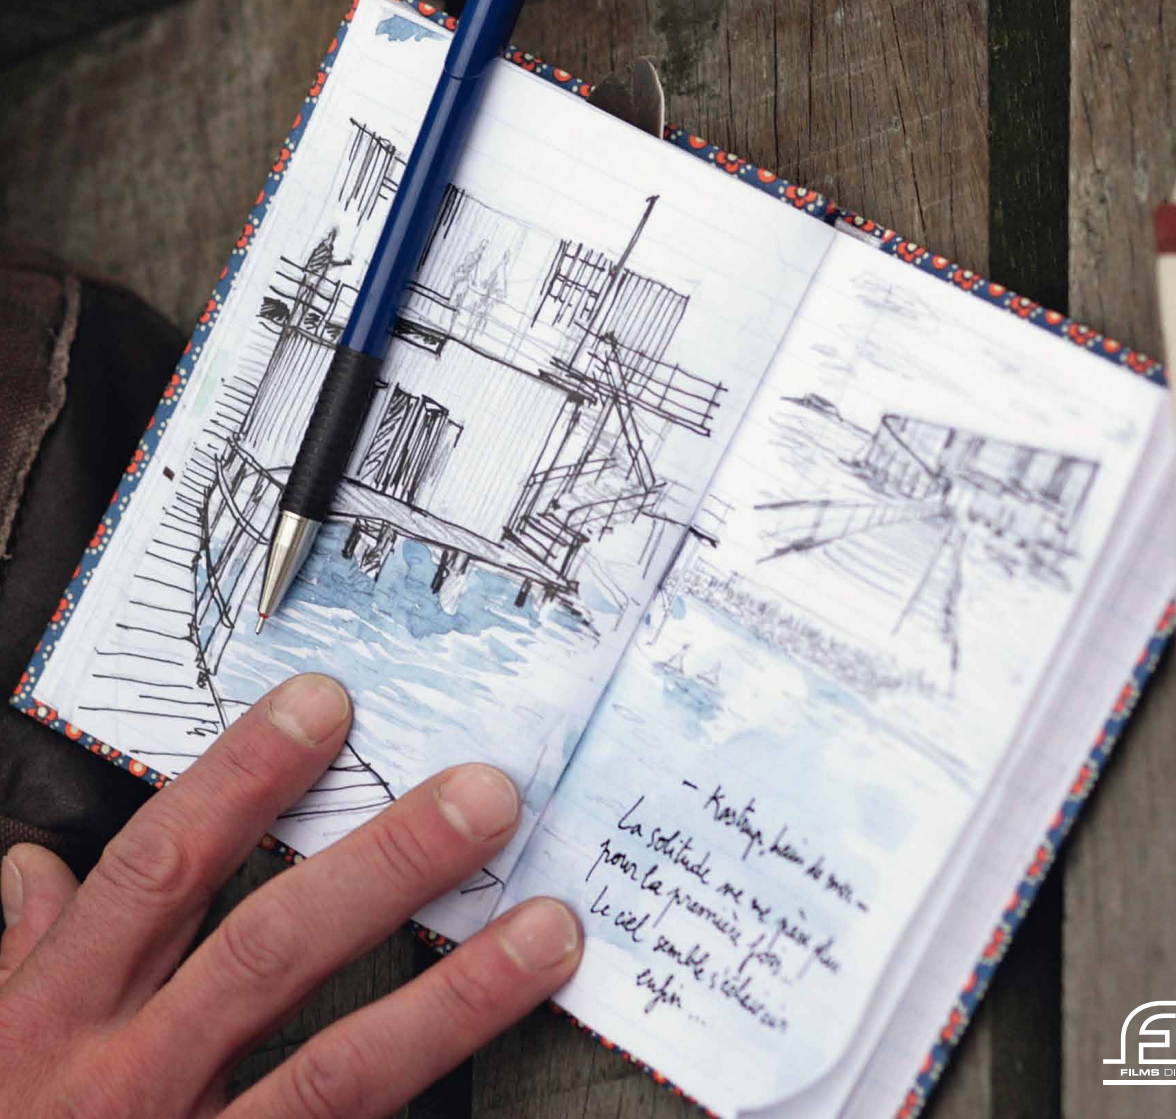 – Kastrup, bain de mer –
La solitude ne me pèse plus
pour la première fois...
Le ciel semble s'éclaircir
enfin...
FILMS